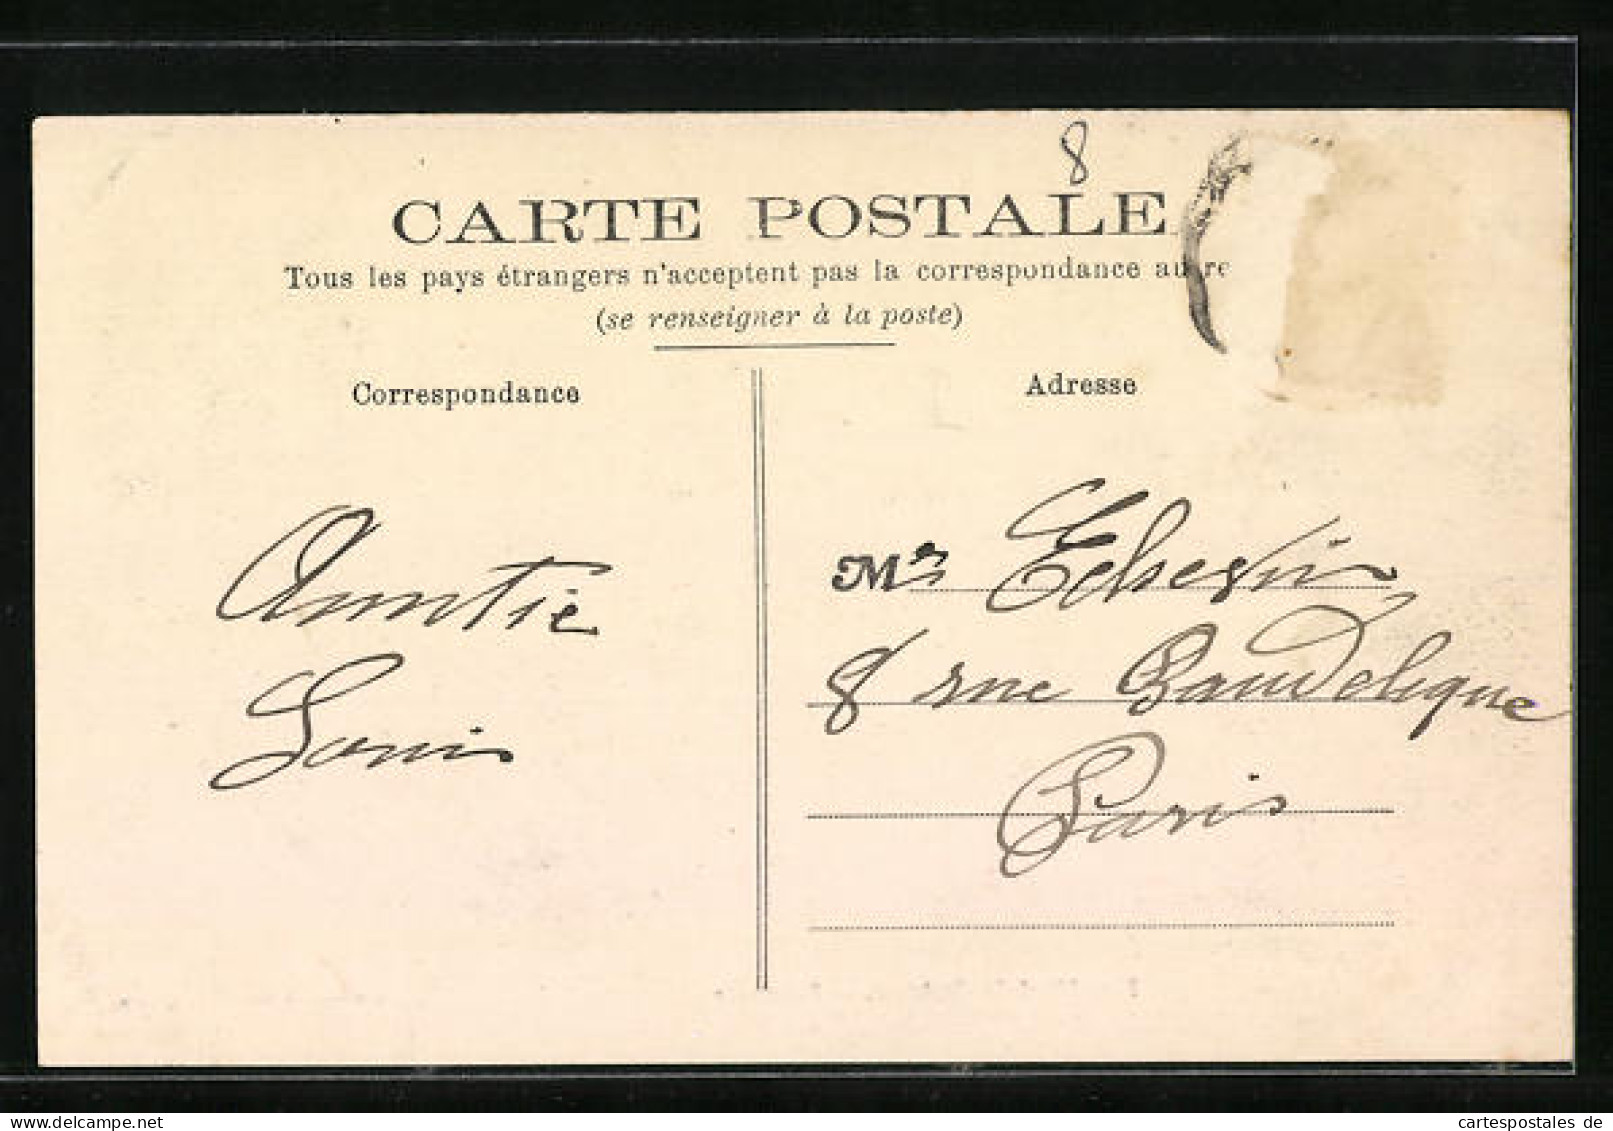 8
CARTE POSTALE
Tous les pays étrangers n'acceptent pas la correspondance au re
(se renseigner à la poste)
Correspondance
Adresse
Amitié
Louis
Mr
8 rue Baudelique
Paris
cartespostales de